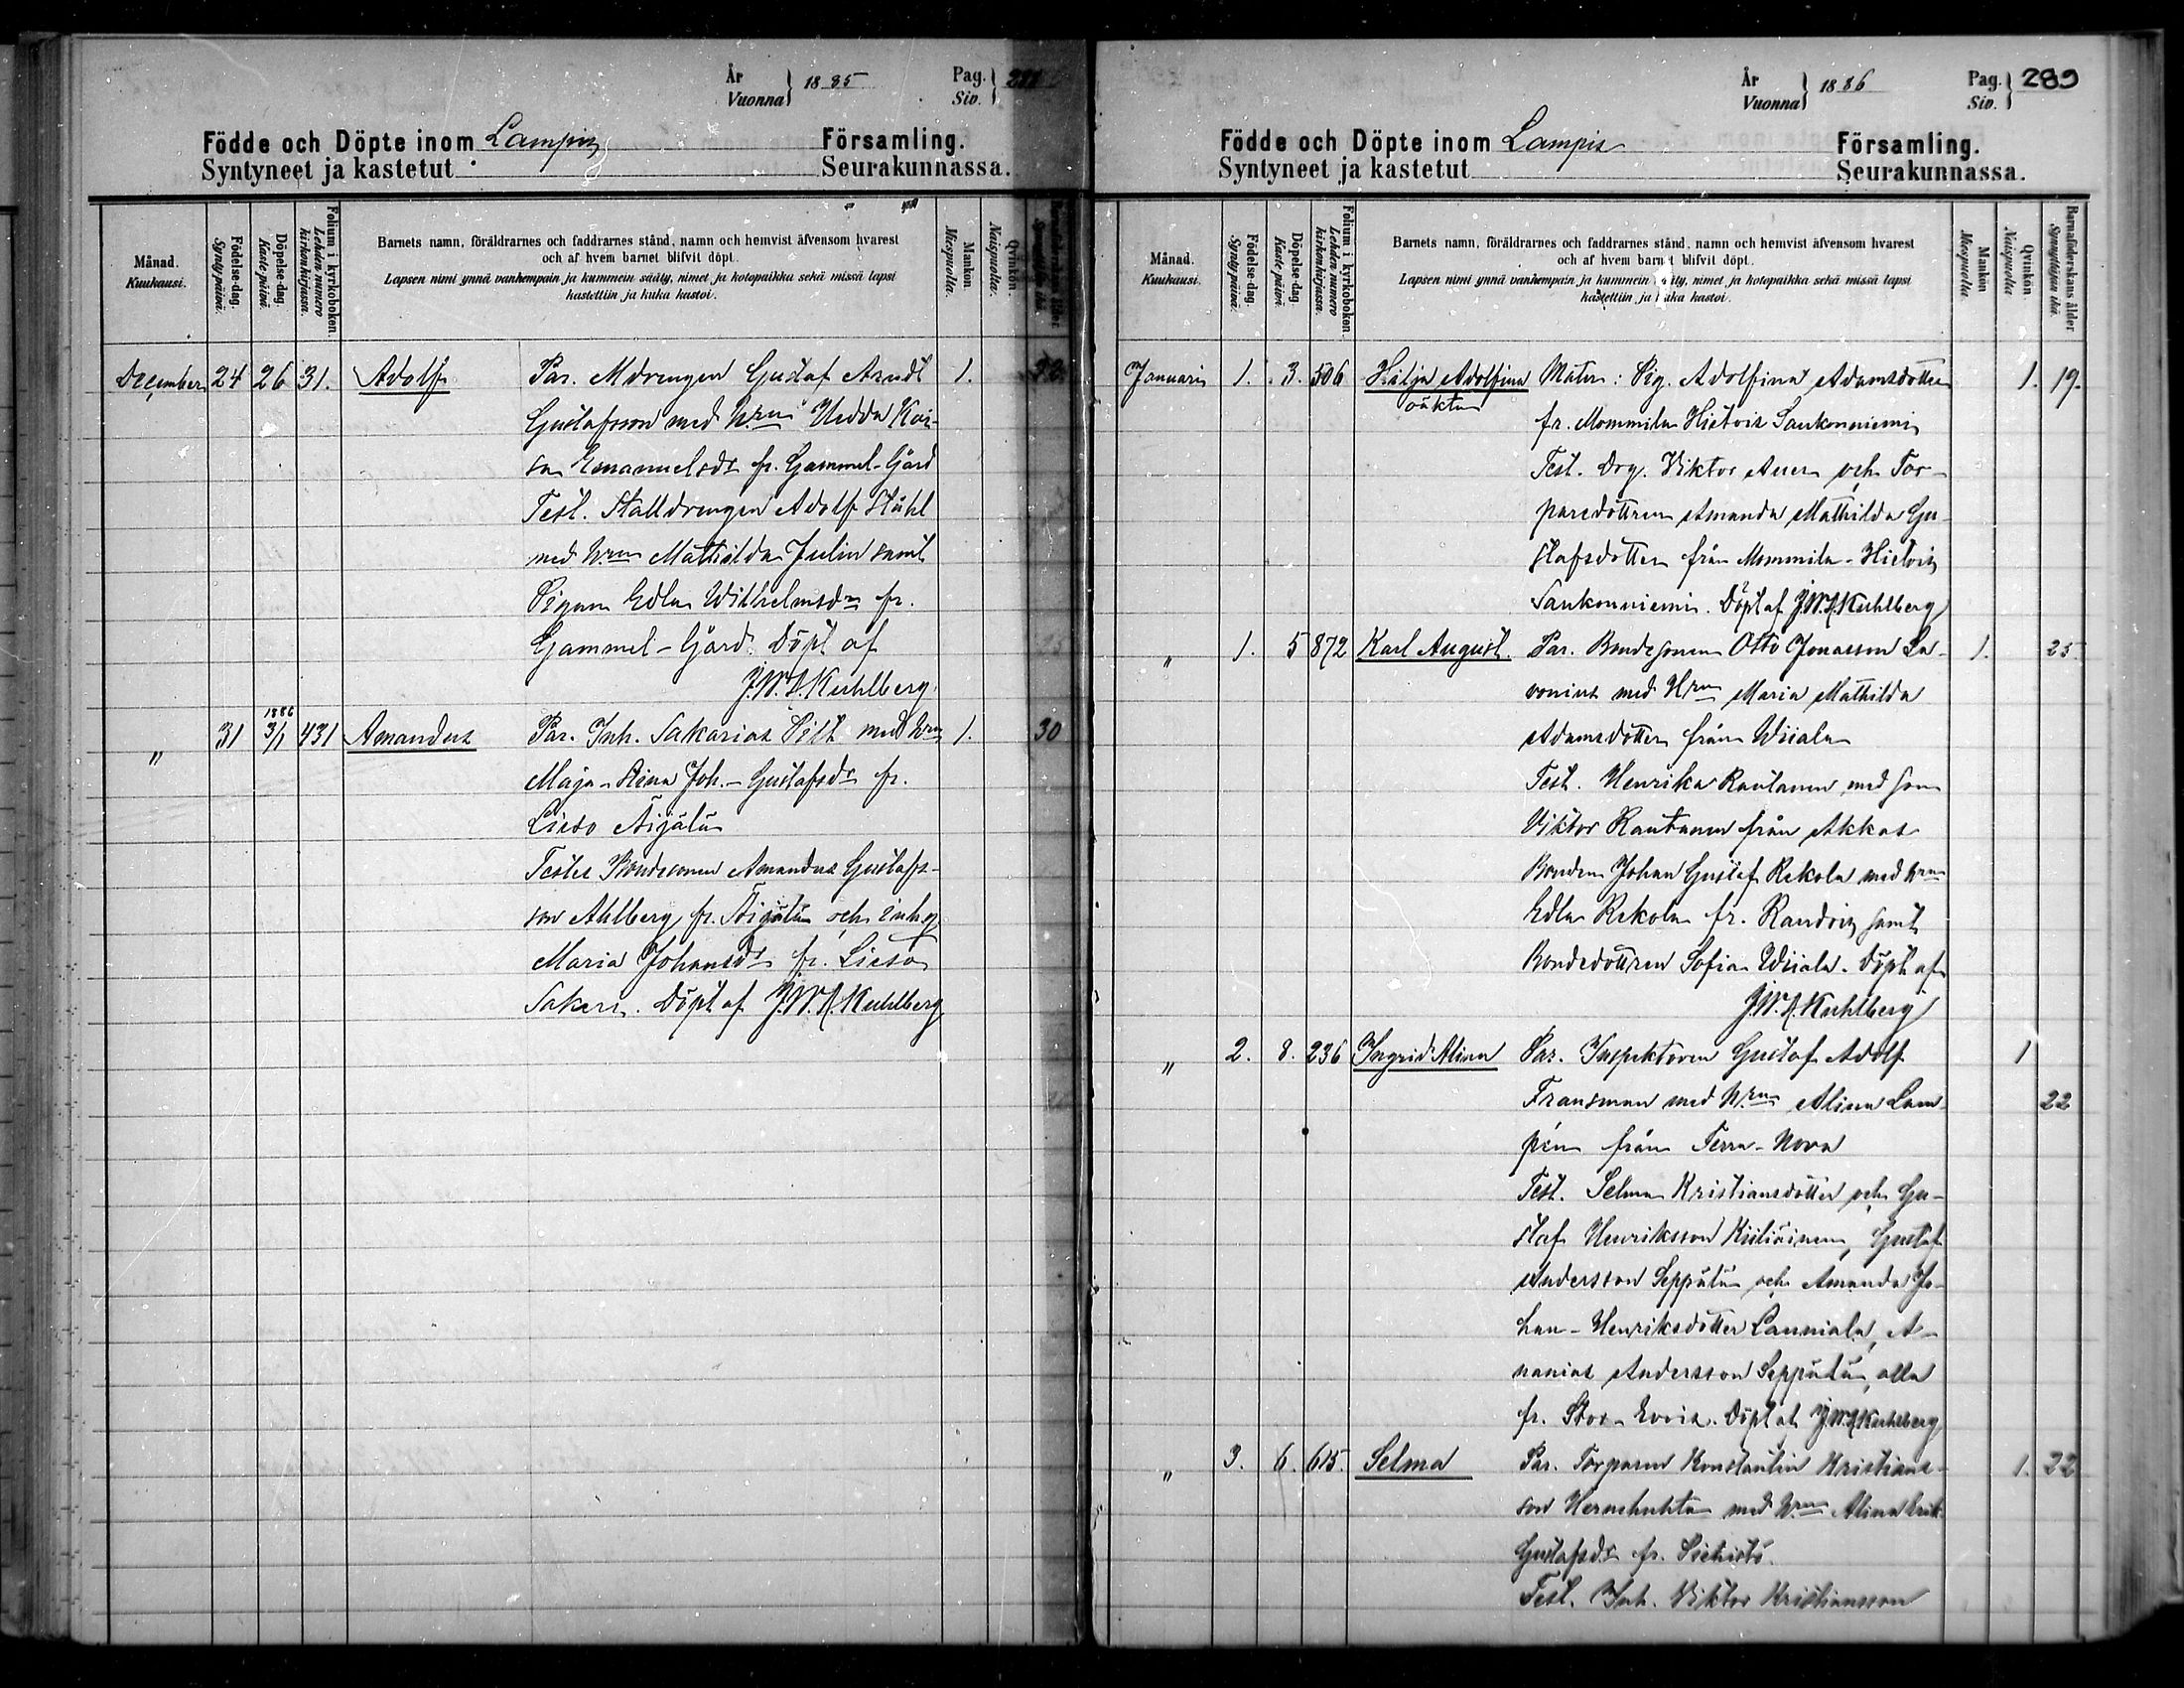 År
Vuonna } 1885
Pag.
Siv. }
Födde och Döpte inom Lampis Församling.
Syntyneet ja kastetut Seurakunnassa.
Månad.
Kuukausi.
Födelse-dag.
Synty-päivä.
Döpelse-dag.
Kaste-päivä.
Folium i kyrkoboken.
Lehden numero
kirkonkirjassa.
Barnets namn, föräldrarnes och faddrarnes stånd, namn och hemvist äfvensom hvarest
och af hvem barnet blifvit döpt.
Lapsen nimi ynnä vanhempain ja kummein sääty, nimet ja kotopaikka sekä missä lapsi
kastettiin ja kuka kastoi.
Mankön.
Miespuolia.
Qvinkön.
Naispuolia.
December 24 26 31. Adolf Par. Mdrengen Gustaf Arndt 1.
Gustafsson med h:run Hedda Kai-
sa Emanuelsdr fr. Gammel-Gård
Test. Stalldrengen Adolf Ståhl
med h:run Mathilda Julin samt
Pigan Edla Wilhelmsdr fr.
Gammel-Gård. Döpt af
J.W.A. Kuhlberg.
" 31 1886 3/1 431 Amandus Par. Inh. Sakarias Pilt med h:run 1. 30
Maja-Stina Joh.-Gustafsdr fr.
Lieso Äijälä
Testes Bondesonen Amandus Gustafs-
son Ahlberg fr. Äijälä och inh.
Maria Johansdr fr. Lieso
Sakari. Döpt af J.W.A. Kuhlberg
År
Vuonna } 1886
Pag.
Siv. } 289
Födde och Döpte inom Lampis Församling.
Syntyneet ja kastetut Seurakunnassa.
Månad.
Kuukausi.
Födelse-dag.
Synty-päivä.
Döpelse-dag.
Kaste-päivä.
Folium i kyrkoboken.
Lehden numero
kirkonkirjassa.
Barnets namn, föräldrarnes och faddrarnes stånd, namn och hemvist äfvensom hvarest
och af hvem barnet blifvit döpt.
Lapsen nimi ynnä vanhempain ja kummein sääty, nimet ja kotopaikka sekä missä lapsi
kastettiin ja kuka kastoi.
Mankön
Miespuolia
Qvinkön
Naispuolia
Barnaföderskans ålder
Synnyttäjän ikä.
Januari 1. 3. 506 Hilja Adolfina Mater: Pig. Adolfina Adamsdotter 1. 19.
oäkta
fr. Mommila Hietois Sankonniemi
Test. Drg. Viktor Auer och Tor-
paredottren Amanda Mathilda Gu-
stafsdotter från Mommila-Hietois
Sankonniemi. Döpt af J.W.A. Kuhlberg
" 1. 5 872 Karl August. Par. Bondesonen Otto Jonasson La- 1. 25.
vonius med H:run Maria Mathilda
Adamsdotter från Wiiala
Test. Henrika Rautanen med son
Viktor Rautanen från Akkas
Bonden Johan Gustaf Rekola med h:run
Edla Rekola fr. Randois samt
Bondedottren Sofia Wiiala. Döpt af
J.W.A. Kuhlberg
" 2. 8. 236 Ingrid Alina Par. Inspektoren Gustaf Adolf 1
Fransman med h:run Alina Lam- 22
pén från Terra-Nova
Test. Selma Kristiansdotter och Gu-
staf Henriksson Kiiliäinen, Gustaf
Andersson Seppälä och Amanda Jo-
han-Henriksdotter Launiala, A-
nanias Andersson Seppälä, alla
fr. Stor-Evois. Döpt af J.W.A. Kuhlberg
" 3. 6. 615. Selma Par. Torparen Konstantin Kristians- 1. 22
son Hernehuhta med h:run Alina Erik
Gustafsdr fr.
Test. Inh. Viktor Kristiansson